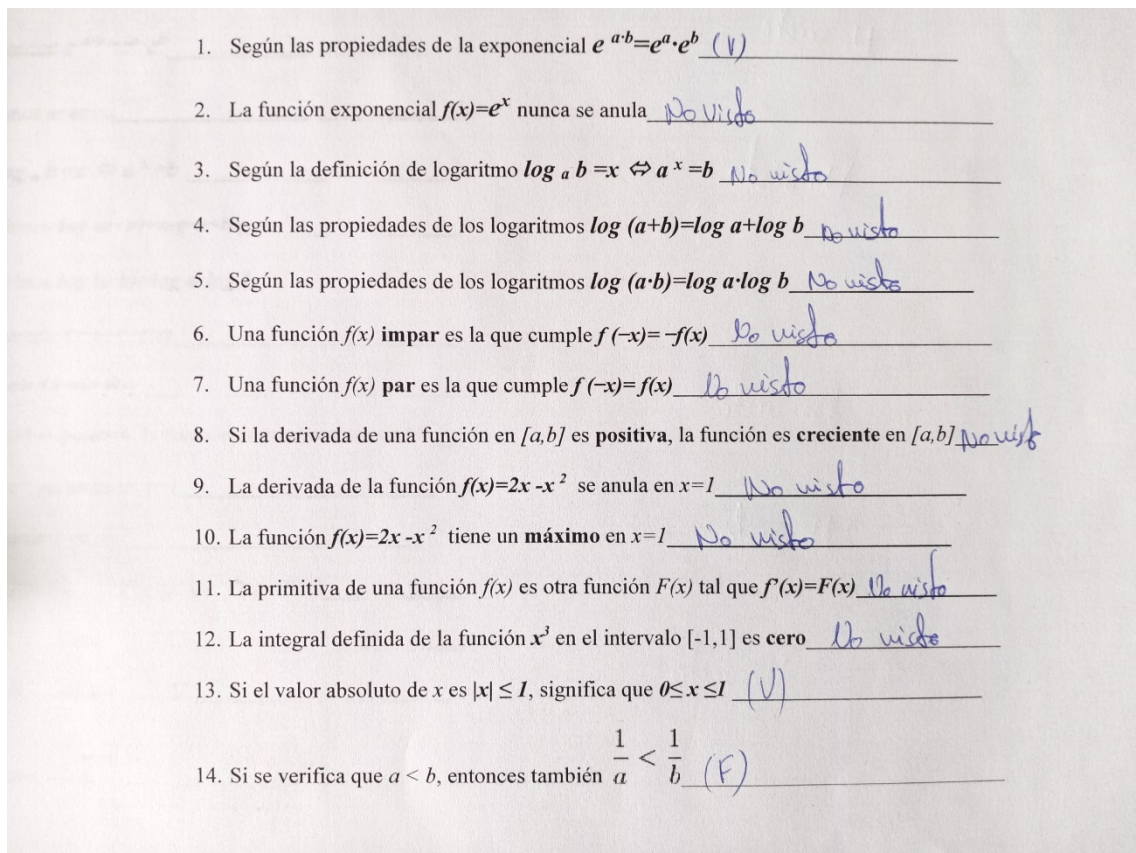 1. Según las propiedades de la exponencial e a·b=ea·eb (V)
2. La función exponencial f(x)=ex nunca se anula No Visto
3. Según la definición de logaritmo log a b =x ⇔ a x =b No visto
4. Según las propiedades de los logaritmos log (a+b)=log a+log b no visto
5. Según las propiedades de los logaritmos log (a·b)=log a·log b No visto
6. Una función f(x) impar es la que cumple f (−x)= −f(x) No visto
7. Una función f(x) par es la que cumple f (−x)= f(x) No visto
8. Si la derivada de una función en [a,b] es positiva, la función es creciente en [a,b] No visto
9. La derivada de la función f(x)=2x -x 2 se anula en x=1 No visto
10. La función f(x)=2x -x 2 tiene un máximo en x=1 No visto
11. La primitiva de una función f(x) es otra función F(x) tal que f'(x)=F(x) No visto
12. La integral definida de la función x3 en el intervalo [-1,1] es cero No visto
13. Si el valor absoluto de x es |x| ≤ 1, significa que 0≤ x ≤1 (V)
14. Si se verifica que a < b, entonces también 1/a < 1/b (F)